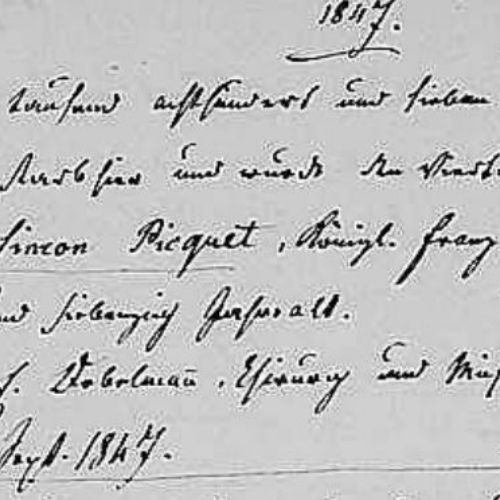 1847.
tausend achthundert und sieben
starb hier und wurde den Viert
Simon Picquet, Königl. Franz
und siebenzig Jahre alt.
Debelmann, Chirurg und
Sept. 1847.